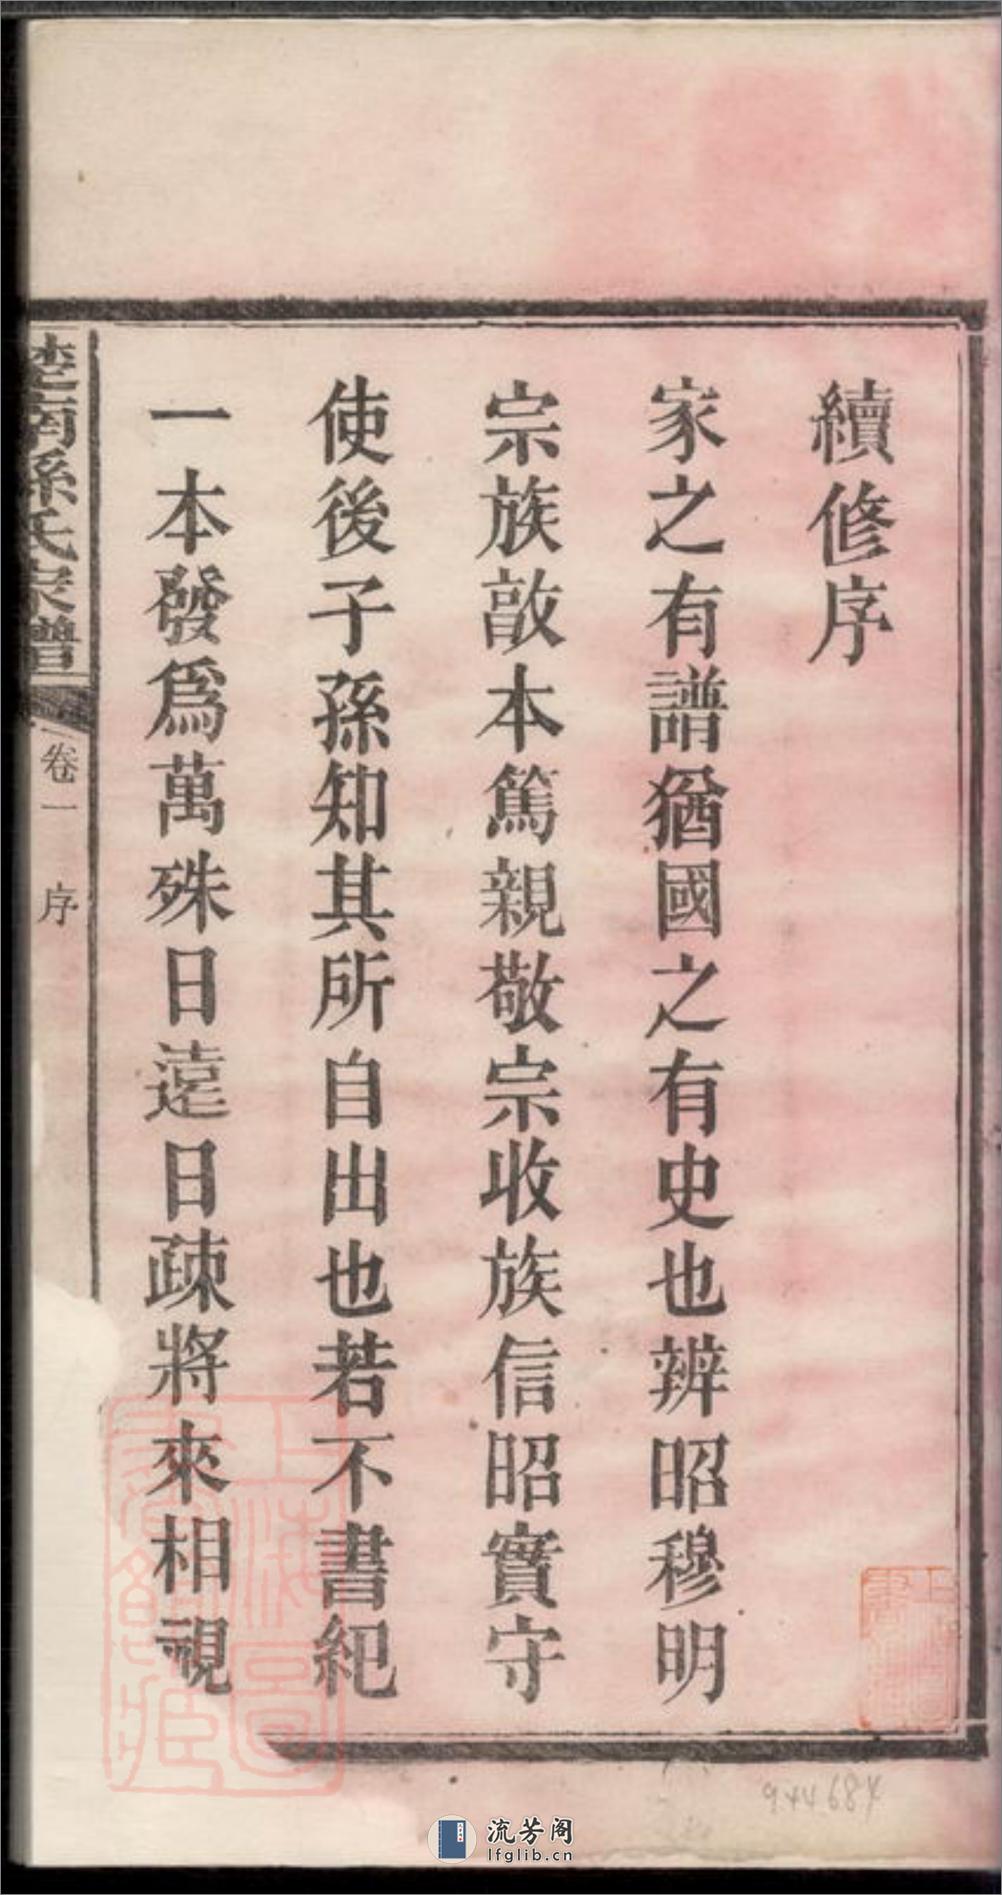 續修序
家之有譜猶國之有史也辨昭穆明
宗族敨本篤親敬宗收族信昭實守
使後子孫知其所自出也若不書紀
一本發爲萬殊日遠日疎將來相視
楚南孫氏宗譜
卷一
序
上海圖書館藏
944684
流芳阁
lfglib.cn